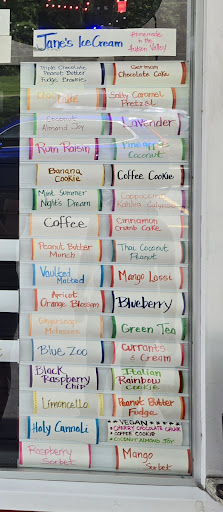 Jane's Ice Cream
Homemade
in the
Hudson Valley!
Triple Chocolate
Peanut Butter
Fudge Brownie
German
Chocolate Cake
Salty Caramel
Pretzel
Coconut
Almond Joy
Lavender
Rum Raisin
Pineapple
Coconut
Banana
Cookie
Coffee Cookie
Mint Summer
Night's Dream
Cappuccino
Kahlua Calypso
Coffee
Cinnamon
Crumb Cake
Peanut Butter
Munch
Thai Coconut
Peanut
Vaulted
Malted
Mango Lassi
Apricot
Orange Blossom
Blueberry
Gingersnap
Molasses
Green Tea
Blue Zoo
Currants
& Cream
Black
Raspberry
Chip
Italian
Rainbow
Cookie
Limoncello
Peanut Butter
Fudge
Holy Cannoli
VEGAN
CHERRY CHOCOLATE CHUNK
COFFEE COOKIE
COCONUT ALMOND JOY
Raspberry
Sorbet
Mango
Sorbet